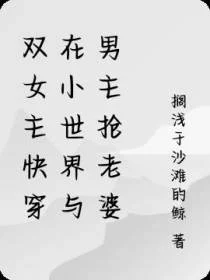 双女主快穿
在小世界与
男主抢老婆
搁浅于沙滩的鲸 著